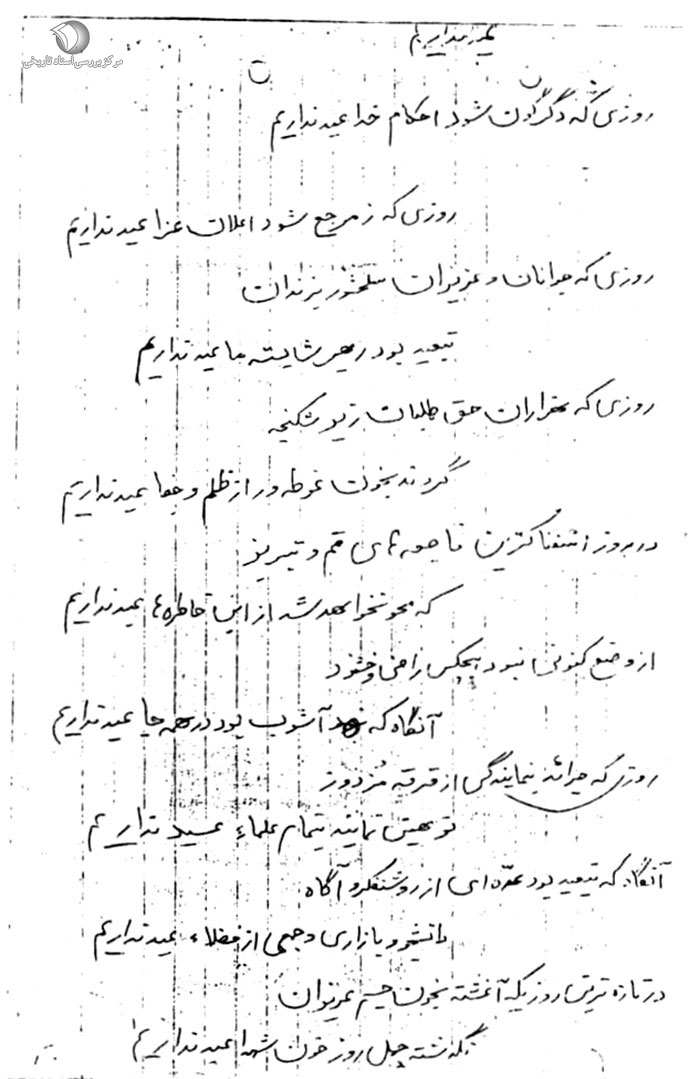 مرکز بررسی اسناد تاریخی
عید نداریم
روزی که دگرگون شود احکام خدا عید نداریم
روزی که ز مرجع شود اعلان عزا عید نداریم
روزی که جوانان و عزیزان سلحشور بزندان
تبعید بود رهبر شایسته ما عید نداریم
روزی که هزاران حق طلبان زیر شکنجه
گردند بخون غوطه ور از ظلم و جفا عید نداریم
در بروز اسفناکترین فاجعه های قم و تبریز
که محو نخواهد شد از این خاطره ها عید نداریم
از وضع کنونی نبود هیچکس راضی و خشنود
آنگاه که آشوب بود در همه جا عید نداریم
روزی که جرائد بنمایندگی از فرقه مزدور
توهین نمایند بتمام علماء عید نداریم
آنگاه که تبعید بود عده ای از روشنفکر و آگاه
دانشجو بازاری و جمعی از فضلاء عید نداریم
در تازه ترین روزیکه آغشته بخون جسم عزیزان
نگذشته چهل روز خون شهدا عید نداریم